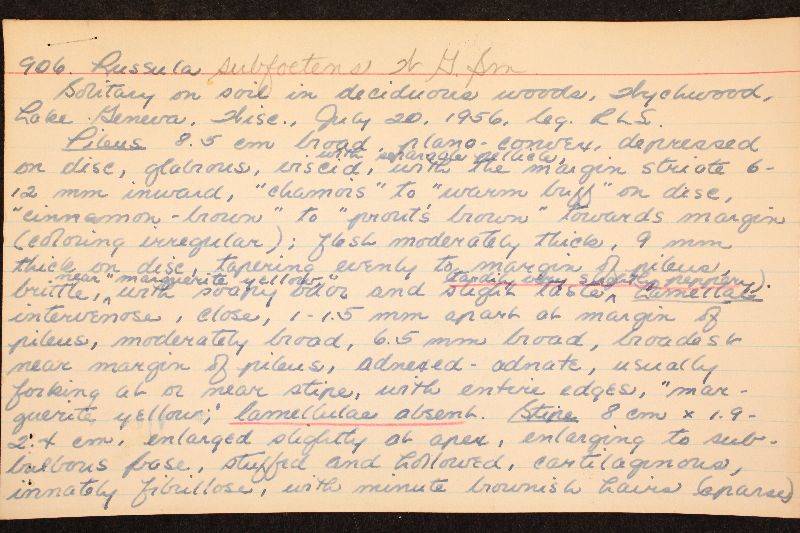 906. Russula subfoetens W. G. Sm.
Solitary on soil in deciduous woods, Wychwood,
Lake Geneva, Wisc., July 20, 1956, leg. RLS.
Pileus 8.5 cm broad, plano-convex, depressed
with separable pellicle,
on disc, glabrous, viscid, with the margin striate 6-
12 mm inward, "chamois" to "warm buff" on disc,
"cinnamon-brown" to "prout's brown" towards margin
(coloring irregular); flesh moderately thick, 9 mm
thick on disc, tapering evenly to margin of pileus,
near "marguerite yellow" tardily very slightly peppery).
brittle, with soapy odor and slight taste. Lamellae
intervenose, close, 1-1.5 mm apart at margin of
pileus, moderately broad, 6.5 mm broad, broadest
near margin of pileus, adnexed-adnate, usually
forking at or near stipe, with entire edges, "mar-
guerite yellow;" lamellulae absent. Stipe 8 cm x 1.9-
2.4 cm, enlarged slightly at apex, enlarging to sub-
bulbous base, stuffed and hollowed, cartilaginous,
innately fibrillose, with minute brownish hairs (sparse)